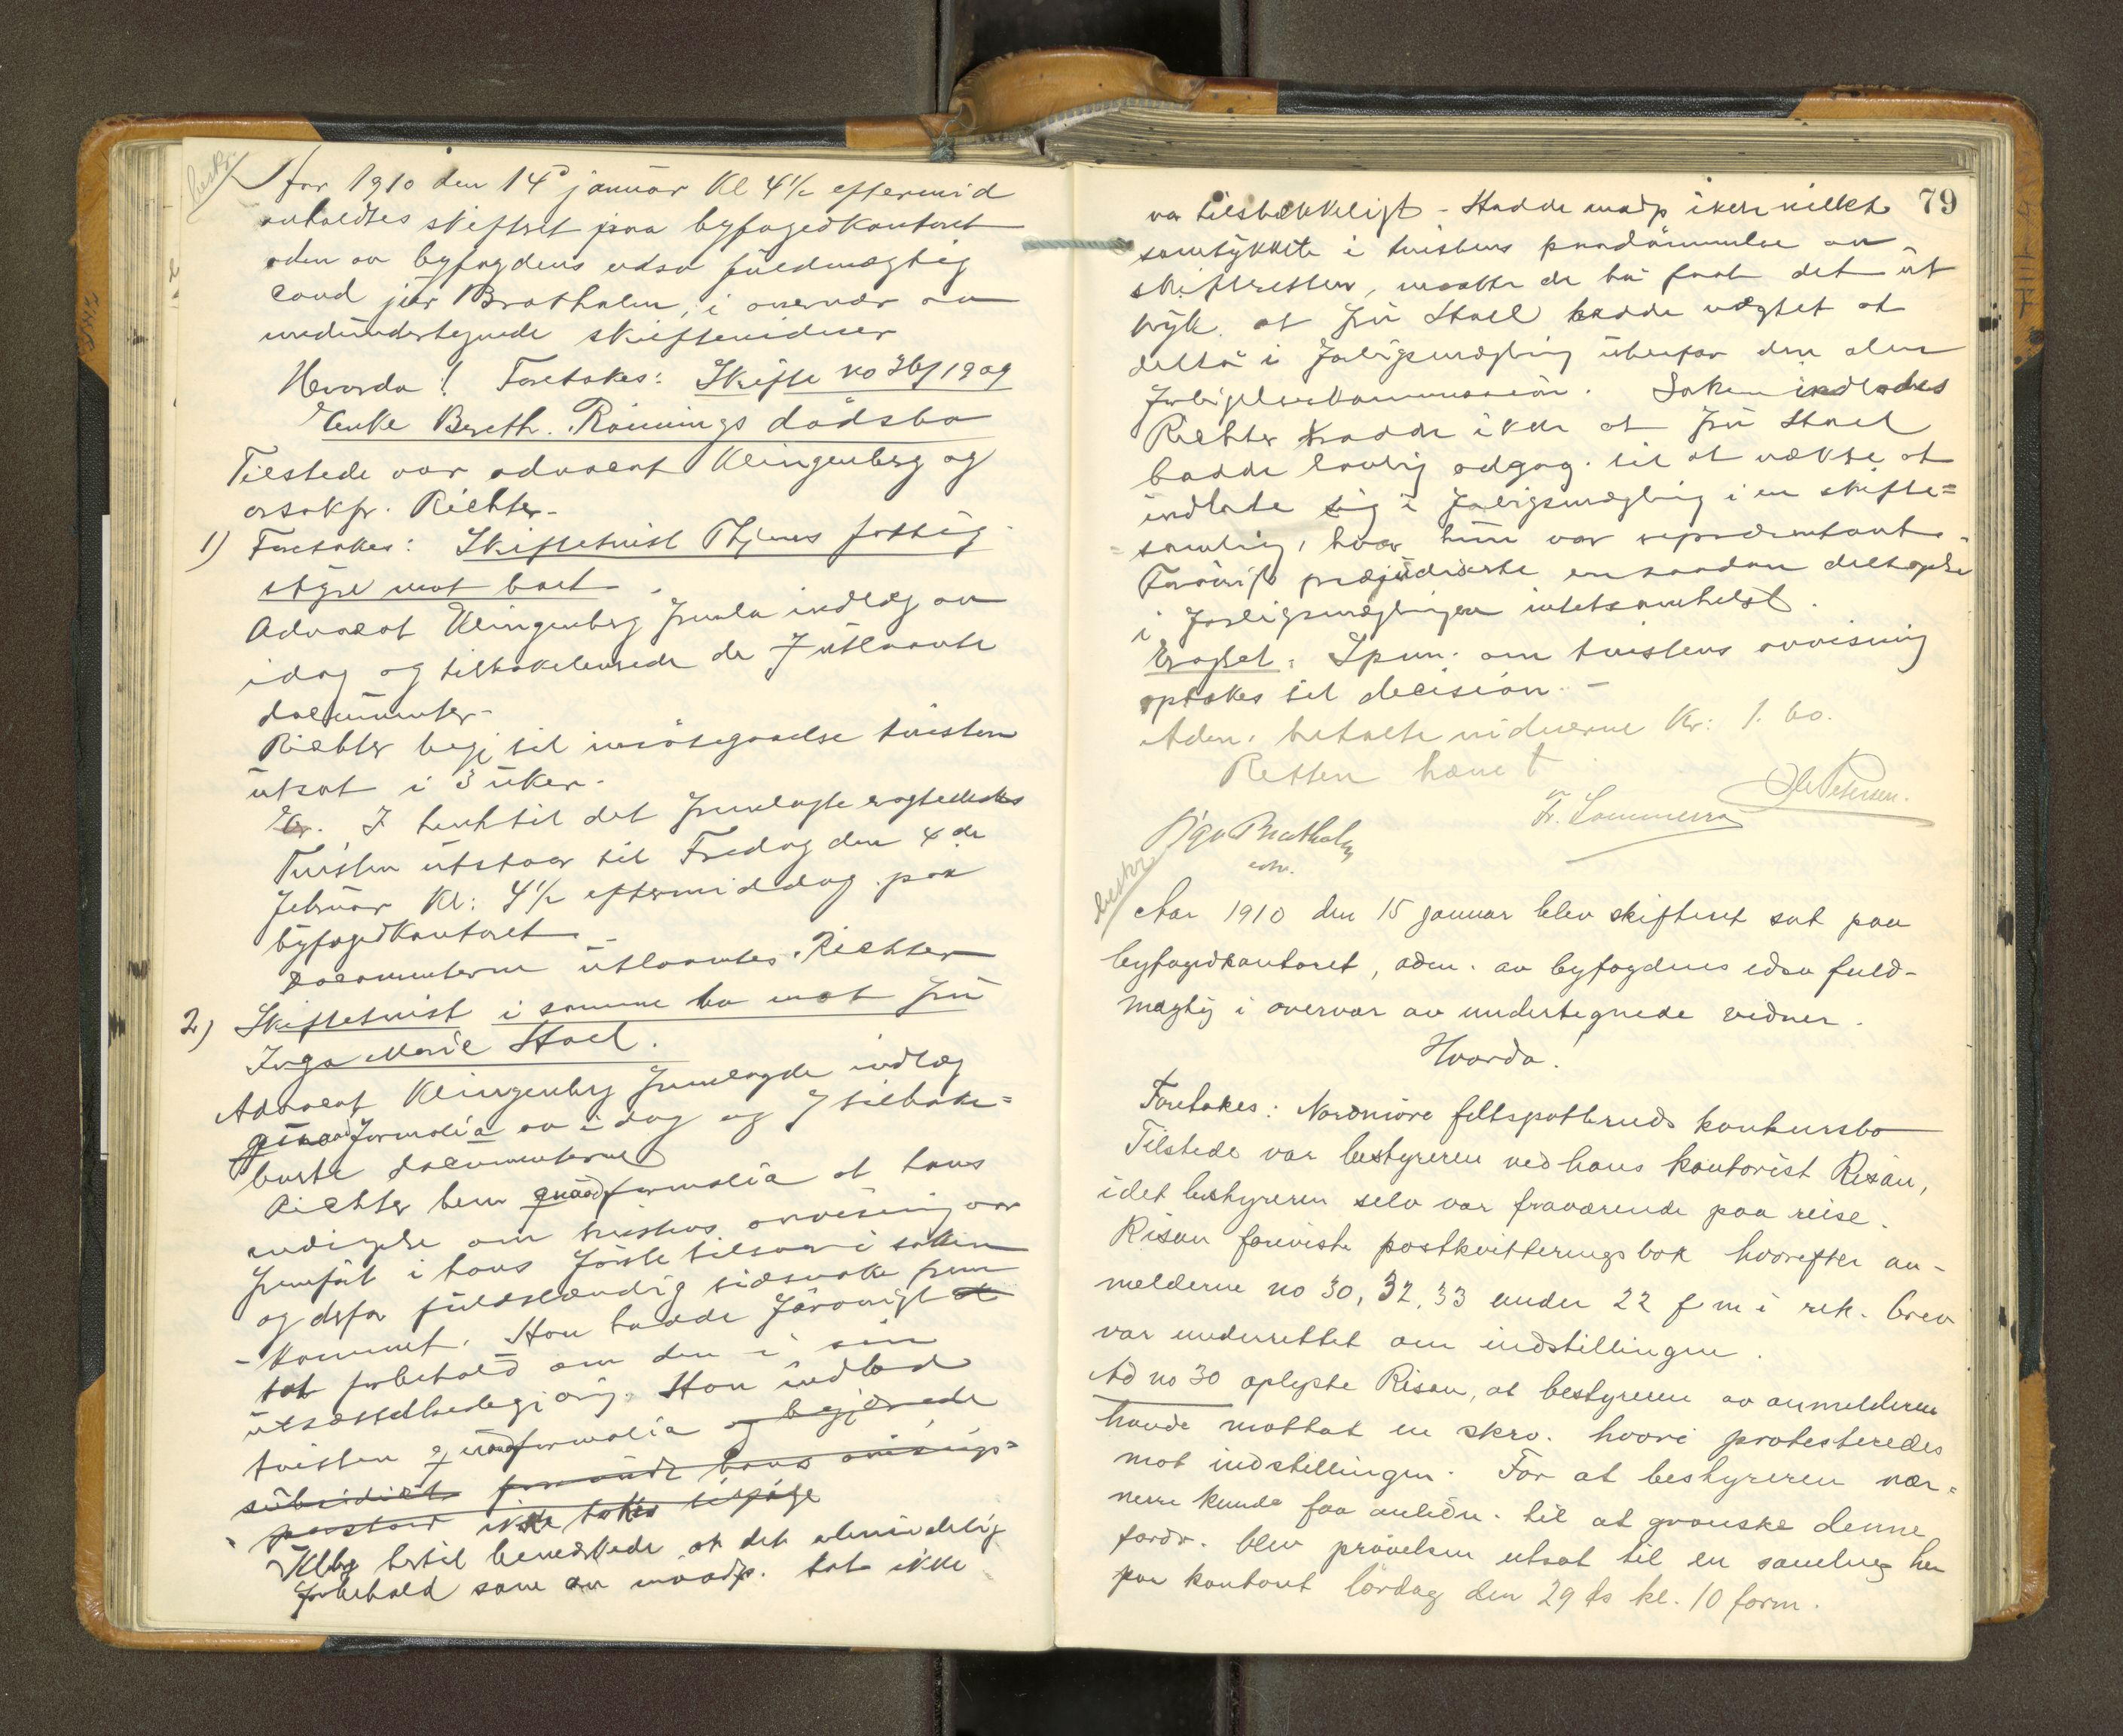 beskr.
Aar 1910 den 14d januar Kl 4½ eftermid
anholdtes skifteret paa byfogedkontoret
adm av byfogdens edsv fuldmægtig
cand jur Bratholm, i overvær av
medundertegnede skiftevidner
Hvorda! Foretokes: Skifte no 36/1909
Enke Bereth. Rønnings dødsbo
Tilstede var advocat Klingenberg og
orsakfr. Richter-
1) Foretokes: Skiftetvist Thjems fattig
styre mot boet.
Advocat Klingenberg fremla indlæg av
idag og tilbakeleverede de 7 utlaante
documenter-
Richter begj til imøtegaaelse tvisten
utsat i 3 uker.
Er. I henh til det fremlagte eragtedes
Tvisten utstaar til Fredag den 4de
februar Kl: 4½ eftermiddag paa
byfogedkontoret
Documenterne utlaantes Richter
2) Skiftetvist i samme bo mot fru
Inga Marie Stael.
Advocat Klingenberg fremlagde indlæg
quoad formalia av i dag og 7 tilbake=
burte documenterne
Richter bem quoad formalia at hans
indigelse om tvistens avvisning var
fremført i hans første tilsvar i saken
og derfor fuldstændig tidsnoke frem
-kommet. Han hadde forøvrigt
tat forbehold om den i sin
utsættelsesbegjæring. Han indlod
tvisten quoad formalia og begjærede
subsidiært
paastand ikke tokes tilfølge
Klbg hertil bemerkede at det almindelig
forbehold som av modp. tat ikke
79
var tilstrækkeligt - Hadde modp ikke villet
samtykket i tvistens paadømmelse av
skifteretten, maatte de ha faat det ut
tryk. at fru Stael hadde nægtet at
delta i forligsmægling utenfor den alm
forligelseskommission. Saken indlodes
Richter trodde ikke at fru Stael
hadde lovlig adgag. til at vække at
indlate sig i forligsmægling i en skifte=
=samling, hvor hun var repræsentant.
Forøvrigt præjudiserte en saadan deltagelse
i forligsmæglingen intetsomhelst.
Eragtet: Spm. om tvistens avvisning
optokes til decision. -
Adm. betalte vidnerne Kr: 1.60.
Retten hævet
Viggo Bratholm
edsv.
Fr. Sommerro
Ole Petersen.
beskr.
Aar 1910 den 15 januar blev skifteret sat paa
byfogedkontoret, adm. av byfogdens edsv fuld-
mægtig i overvær av undertegnede vidner.
Hvorda!
Foretokes: Nordmøre feltspatbruds konkursbo
Tilstede var bestyreren ved hans kontorist Risan,
idet bestyreren selv var fraværende paa reise.
Risan foreviste postkvitteringsbok hvorefter an-
melderne no 30, 32, 33 under 22 f m i rek. brev
var underrettet om indstillingen.
Ad no 30 oplyste Risan, at bestyreren av anmelderen
havde mottat en skrv. hvori protesteredes
mot indstillingen. For at bestyreren nær=
nere kunde faa anledn. til at granske denne
fordr. blev prøvelsen utsat til en samling her
paa kontoret lørdag den 29 ds kl. 10 form.